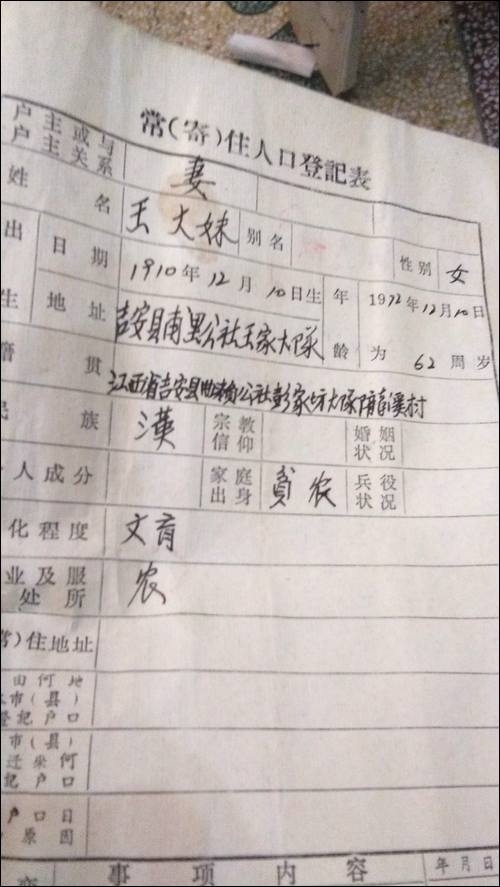 常(寄)住人口登記表
户主或与
户主关系 妻
姓名 王大妹 别名 性别 女
出生 日期 1910年12月10日生 年龄 1972年12月10日
地址 吉安县南里公社王家大隊 为 62 周岁
籍贯 江西省吉安县曲瀨公社彭家坊大隊
民族 漢 宗教信仰 婚姻状况
人成分 家庭出身 貧农 兵役状况
化程度 文盲
业及服
处所 农
常)住地址
由何地
市(县)
登記户口
市(县)
迁来何
記户口
户口日
原因
变 事項内容 年月日